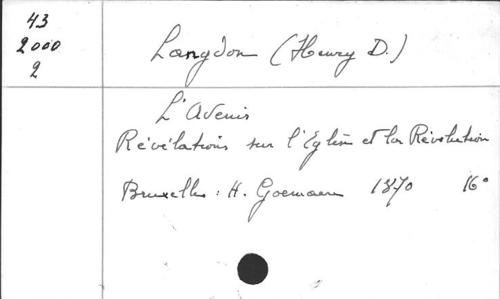 43
2000
2
Langdon (Henry D.)
L'Avenir
Révélations sur l'Eglise et la Révolution
Bruxelles : H. Goemaere 1870 16°